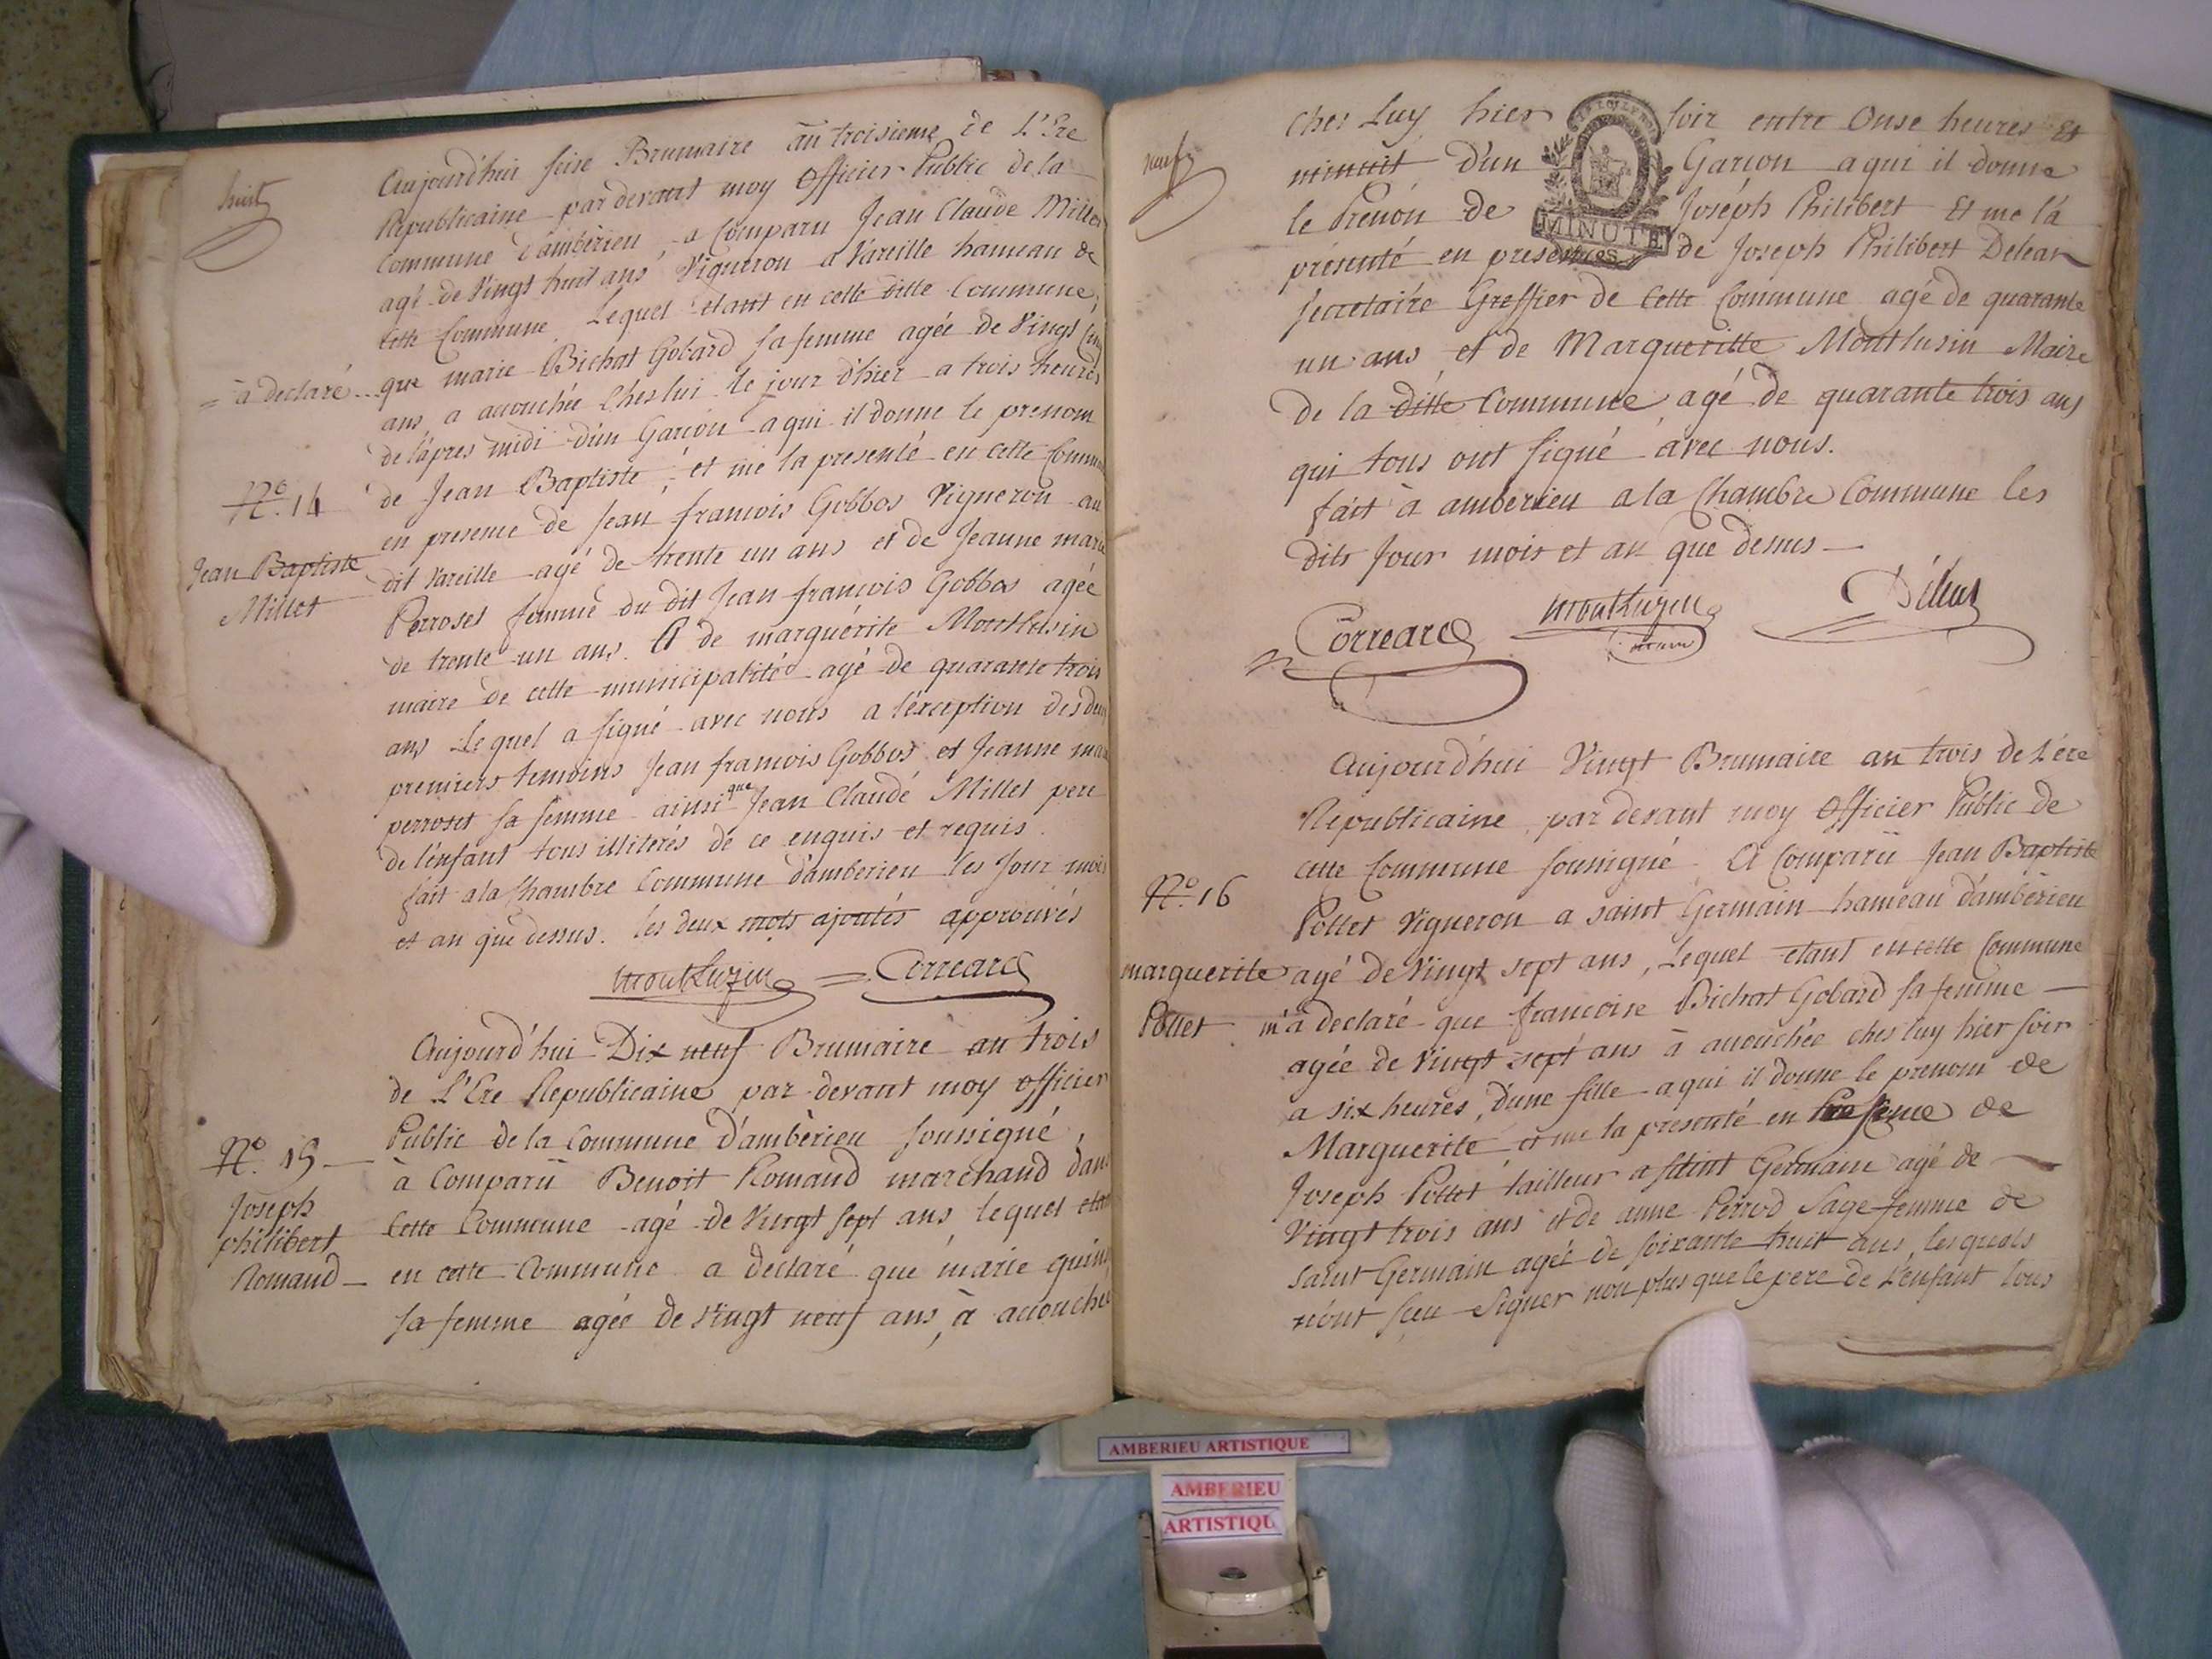 huit
Aujourd'hui seise Brumaire an troisieme de L'Ere
Republicaine par devant moy Officier Public de la
Commune d'ambérieu, a Comparu Jean Claude Millet
agé de Vingt huit ans Vigneron a Vareille hameau de
cette Commune Lequel etant en cette ditte Commune,
= à declaré que marie Bichat Gobard sa femme agée de Vingt Cinq
ans, a accouchée Ches lui le jour d'hier a trois heures
de l'apres midi d'un Garçon a qui il donne le prenom
de Jean Baptiste, et me la presenté en cette Commune
en presence de Jean francois Gobbos Vigneron au
dit Vareille agé de trente un ans et de Jeanne marie
Perroset femme du dit Jean francois Gobbos agée
de trente un ans. Et de marguérite Montlusin
maire de cette municipalité agé de quarante trois
ans Lequel a signé avec nous a l'exception des deux
premiers temoins Jean francois Gobbos et Jeanne marie
perroset sa femme ainsi que Jean Claude Millet pere
de l'enfant tous illiterés de ce enquis et requis.
fait a la Chambre Commune d'ambérieu les Jour mois
et an que dessus. les deux mots ajoutés approuvés
No. 14
Jean Baptiste
Millet
Montluzin = Correard
Aujourd'hui Dix neuf Brumaire an trois
de L'Ere Republicaine par devant moy officier
Public de la Commune D'ambèrieu soussigné,
à Comparü Benoit Romand marchand dans
Cette Commune agé de Vingt sept ans lequel etant
en cette Commune a declaré que marie
sa femme agée de vingt neuf ans, à accouchée
No. 15
Joseph
philibert
Romand
neuf
Ches Luy hier soir entre Onse heures Et
minuit D'un Garçon a qui il donne
le Prenon de Joséph Philibert Et me l'a
présenté en presences de Joseph Philibert Deléas
secretaire Greffier de Cette Commune agé de quarante
un ans et de Margueritte Montlusin Maire
de la ditte Commune agé de quarante trois ans
qui tous ont signé avec nous.
fait à ambérieu a la Chambre Commune les
dits Jour mois et an que dessus
MINUTE
Correard Montluzin Déléas
maire
Aujourd'hui Vingt Brumaire an trois de L'ére
Republicaine par devant moy Officier Public de
cette Commune sousigné A Comparü Jean Baptiste
Pottet Vigneron a saint Germain hameau d'ambérieu
agé de Vingt sept ans, Lequel etant en cette Commune
m'a declaré que francoise Bichat Gobard sa femme
agée de Vingt sept ans à accouchée ches luy hier soir
a six heures, d'une fille a qui il donne le prenom de
Marguerite, et me la presenté en Presence de
Joseph Pottet tailleur a saint Germain agé de
Vingt trois ans et de anne Perrod Sage femme de
saint Germain agée de soixante huit ans, lesquels
n'ont sçeu Signer non plus que le pere de L'enfant tous
No. 16
marguerite
Pottet
AMBERIEU ARTISTIQUE
AMBERIEU
ARTISTIQU